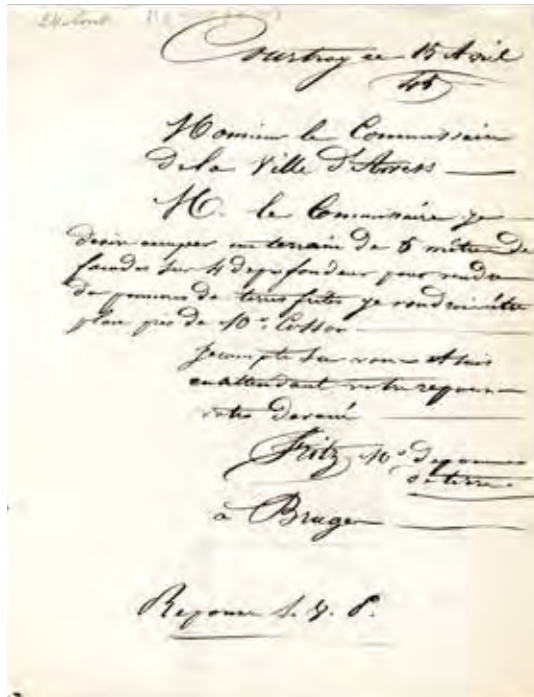 Courtray ce 15 Avril
45
Monsieur le Commissaire
de la Ville d'Anvers
M. le Commissaire je
desir occuper un terrain de 6 mètres de
facades sur 4 de profondeur pour vendre
de pommes de terres frites je voudrai être
place près de Mr.
je compte sur vous et suis
en attendant votre reponse
votre devoué
Fritz Md de pommes
de terre
à Bruges
Reponse S. V. P.